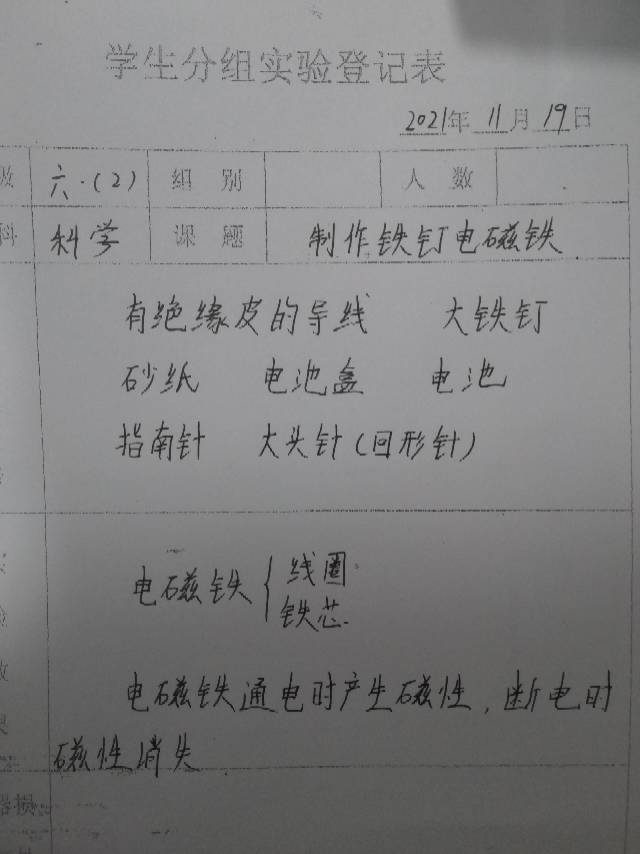 学生分组实验登记表
2021年 11月 19日
级 六.(2) 组别 人数
科 科学 课题 制作铁钉电磁铁
有绝缘皮的导线 大铁钉
砂纸 电池盒 电池
指南针 大头针(回形针)
电磁铁{线圈
铁芯.
电磁铁通电时产生磁性,断电时
磁性消失
器损